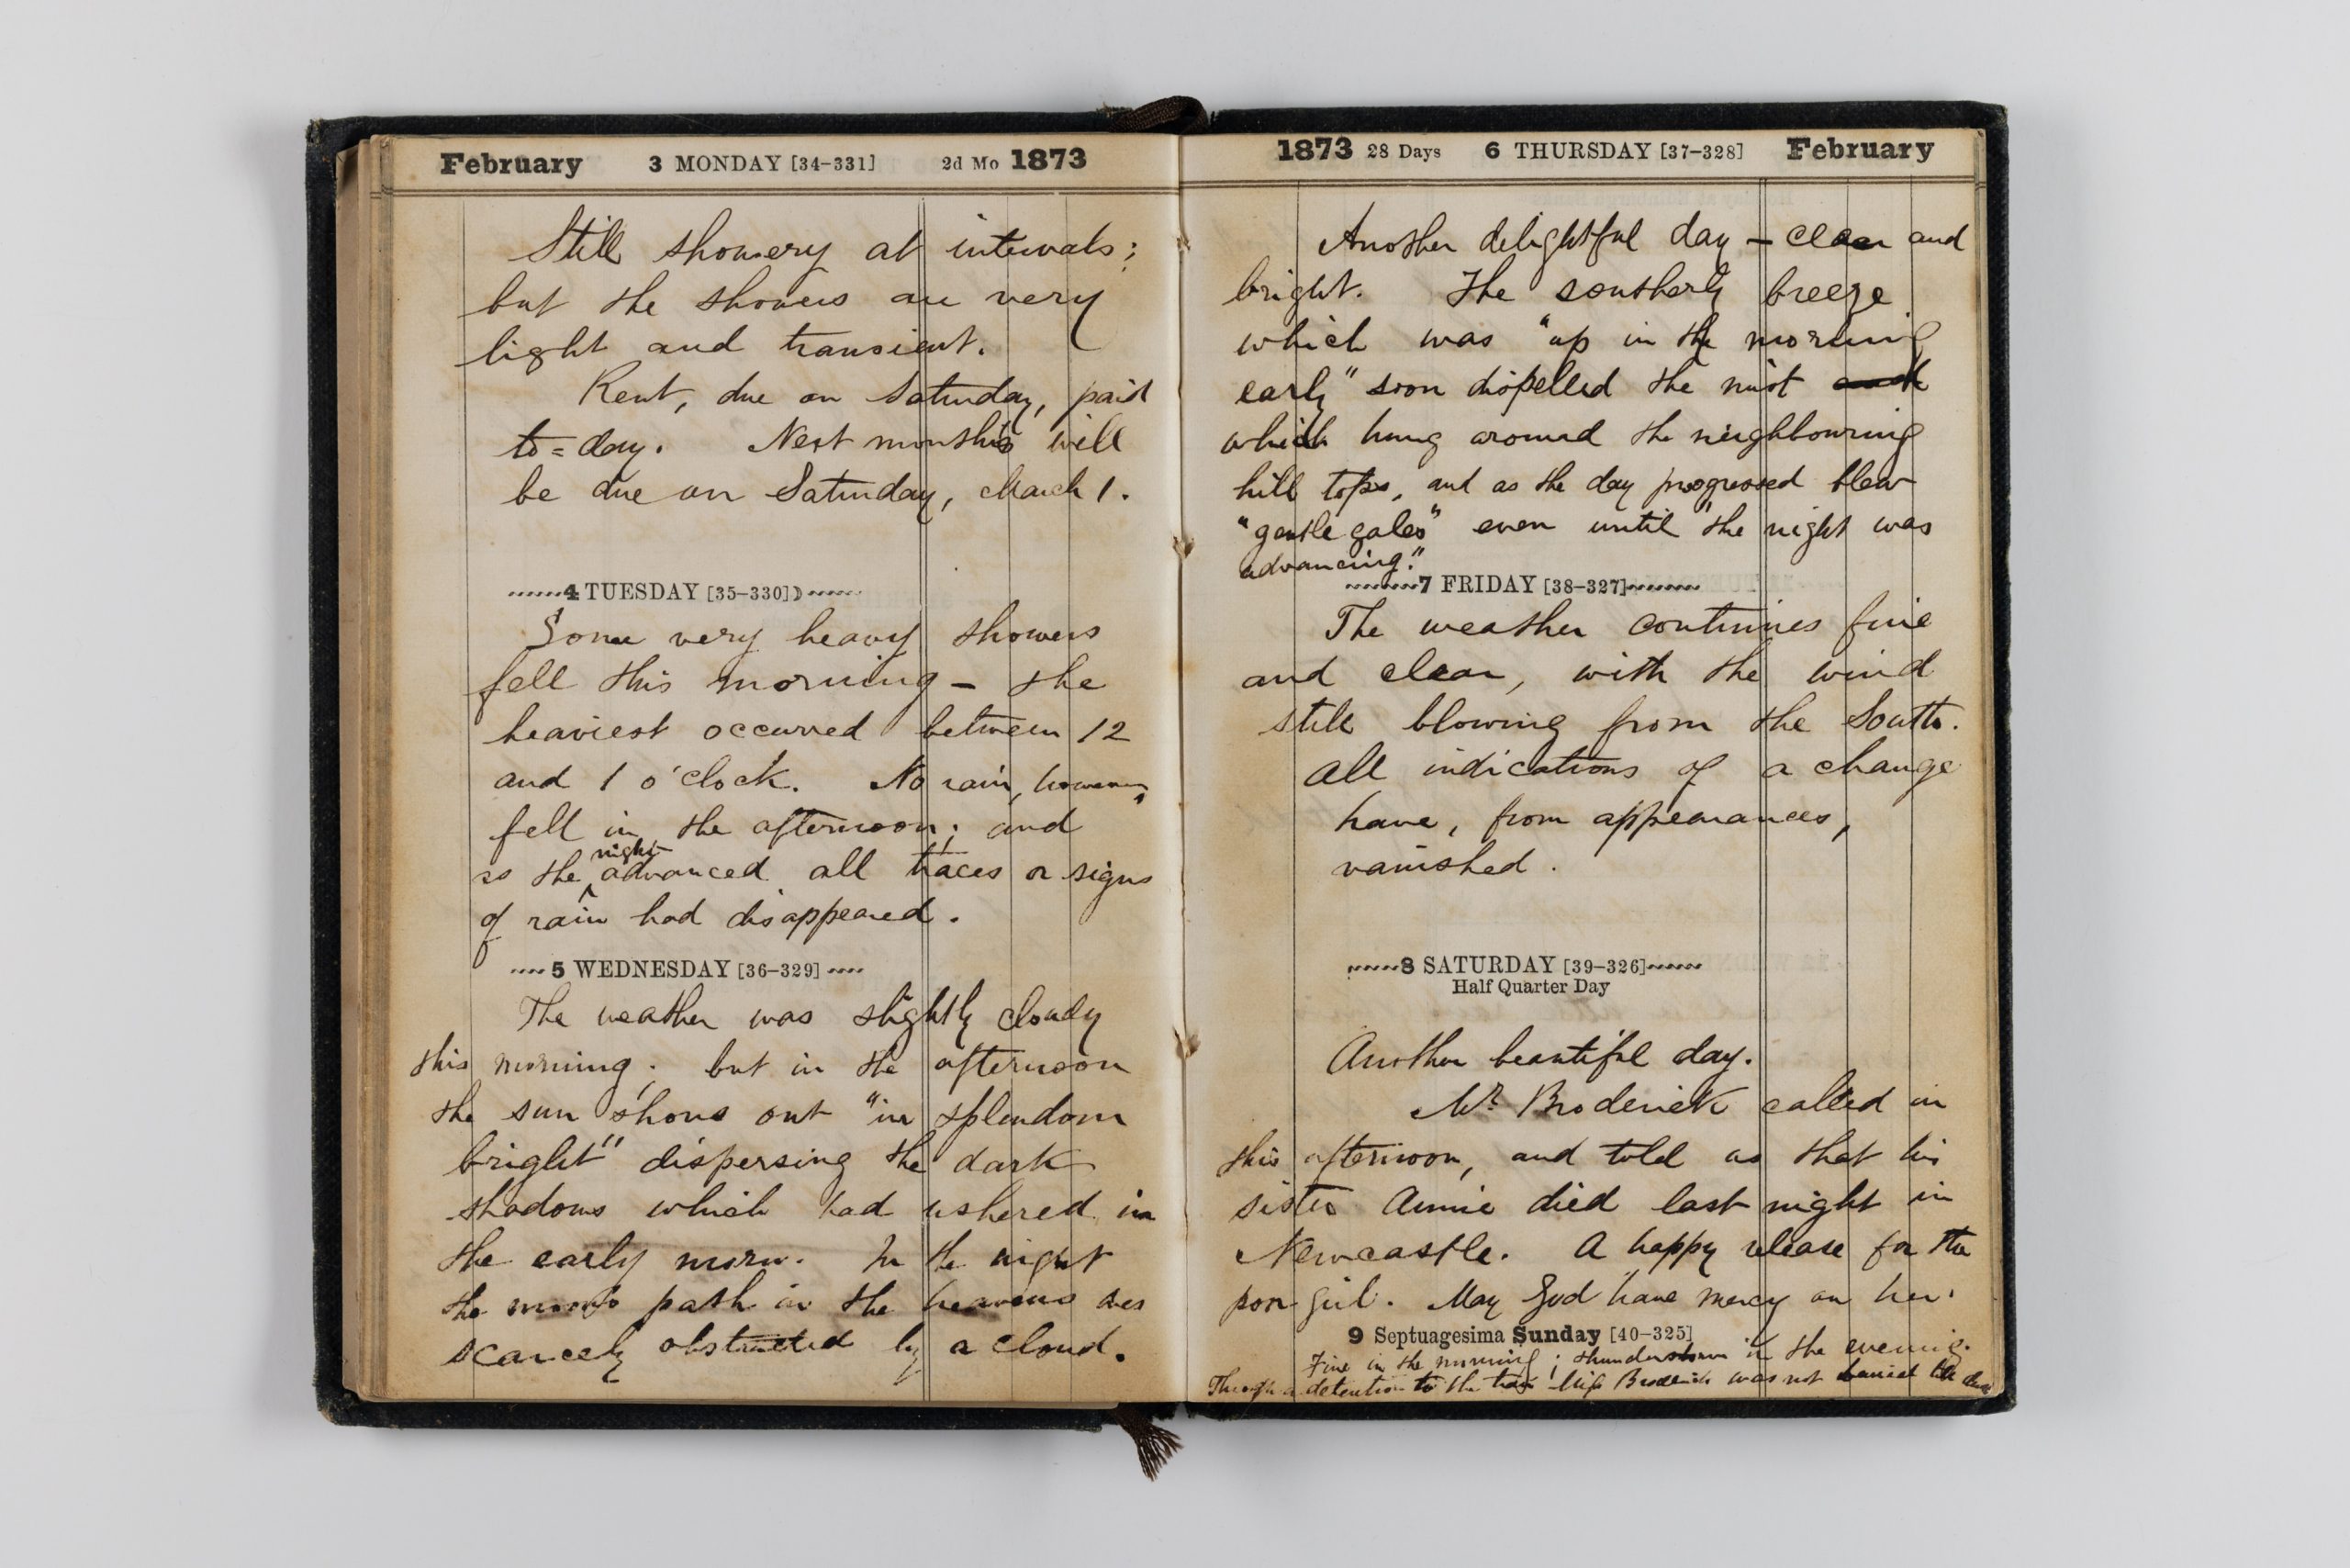 February 3 MONDAY [34-331] 2d Mo 1873
Still showery at intervals;
but the showers are very
light and transient.
Rent, due on Saturday, paid
to=day. Next month's will
be due on Saturday, March 1.
4 TUESDAY [35-330] )
Some very heavy showers
fell this morning – the
heaviest occurred between 12
and 1 o'clock. No rain, however,
fell in the afternoon; and
night
as the ^ advanced all traces or signs
of rain had disappeared.
5 WEDNESDAY [36-329]
The weather was slightly cloudy
this morning; but in the afternoon
the sun shone out "in splendour
bright" dispersing the dark
shadows which had ushered in
the early morn. In the night
the moon's path in the heavens was
scarcely obstructed by a cloud.
1873 28 Days 6 THURSDAY [37-328] February
Another delightful day – clear and
bright. The southerly breeze
which was "up in the morning
early" soon dispelled the mist
which hung around the neighbouring
hill tops, and as the day progressed blew
"gentle gales" even until "the night was
advancing."
7 FRIDAY [38-327]
The weather continues fine
and clear, with the wind
still blowing from the South.
All indications of a change
have, from appearances,
vanished.
8 SATURDAY [39-326]
Half Quarter Day
Another beautiful day.
Mr Broderick called in
this afternoon, and told us that his
sister Annie died last night in
Newcastle. A happy release for the
poor girl. May God have mercy on her.
9 Septuagesima Sunday [40-325]
Fine in the morning; thunderstorm in the evening.
Through a detention to the train Miss Broderick was not buried till